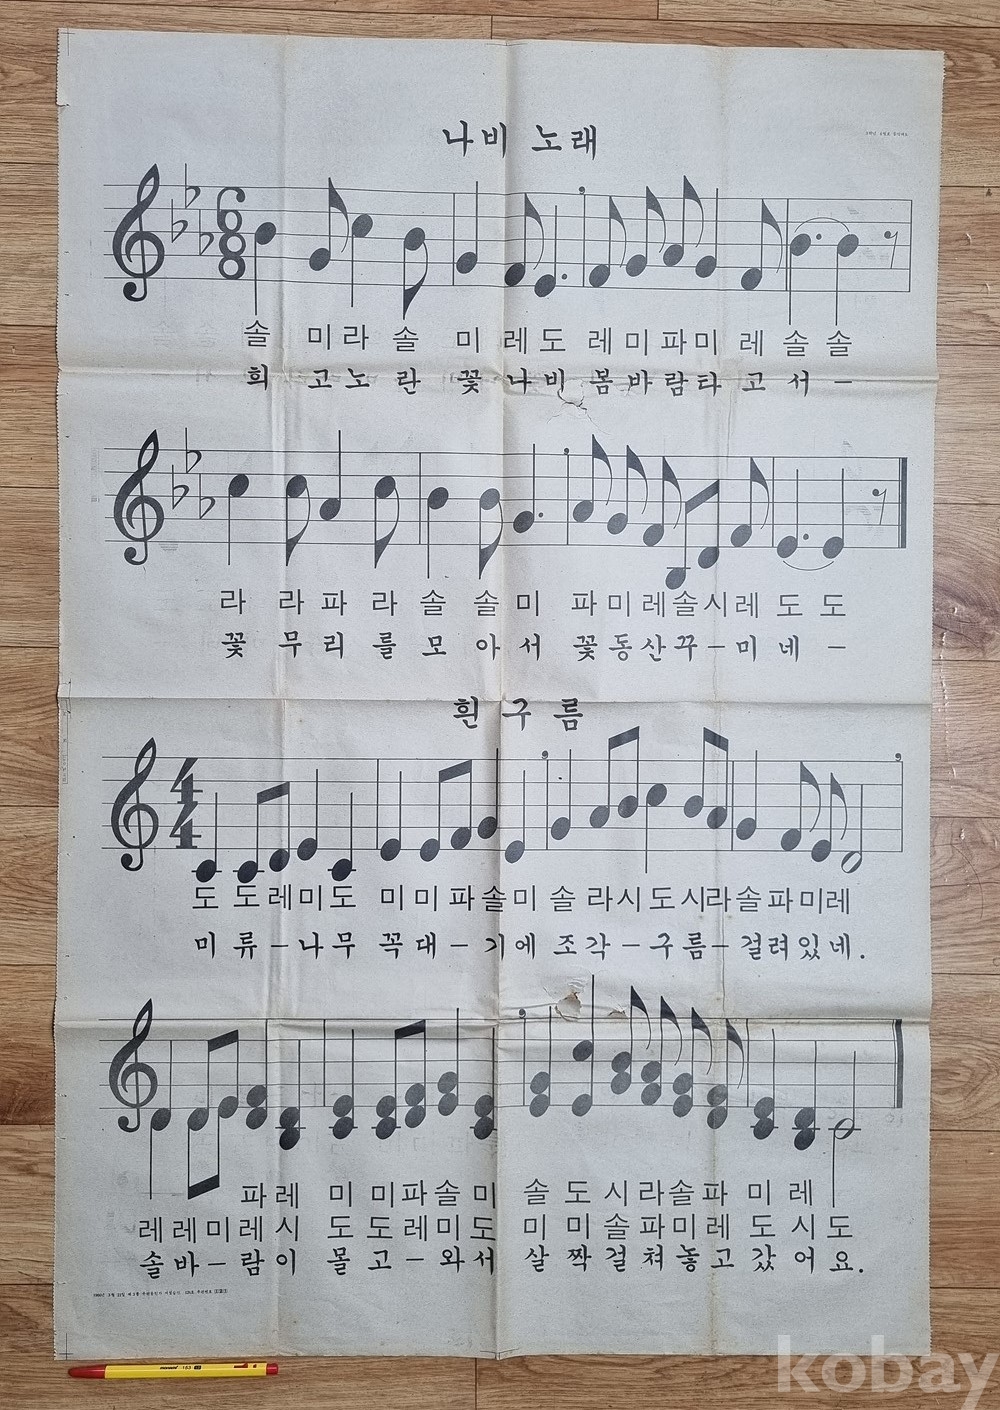 나비 노래
6
8
솔 미라 솔 미 레도 레미파미 레 솔 솔
희 고노 란 꽃 나비 봄바람타 고 서 –
라 라파 라 솔 솔 미 파미레솔시레 도 도
꽃 무리 를 모 아 서 꽃동산꾸–미 네 –
흰구름
4
4
도 도레미도 미미파솔미 솔 라시도시라솔파미레
미 류–나무 꼭대–기에 조각–구름–걸려있네.
파레 미 미파솔미 솔 도 시라솔파 미 레
레레미레시 도 도레미도 미 미 솔파미레 도 시도
솔바–람이 몰고–와서 살 짝걸쳐놓고 갔어요.
monami 153
kobay